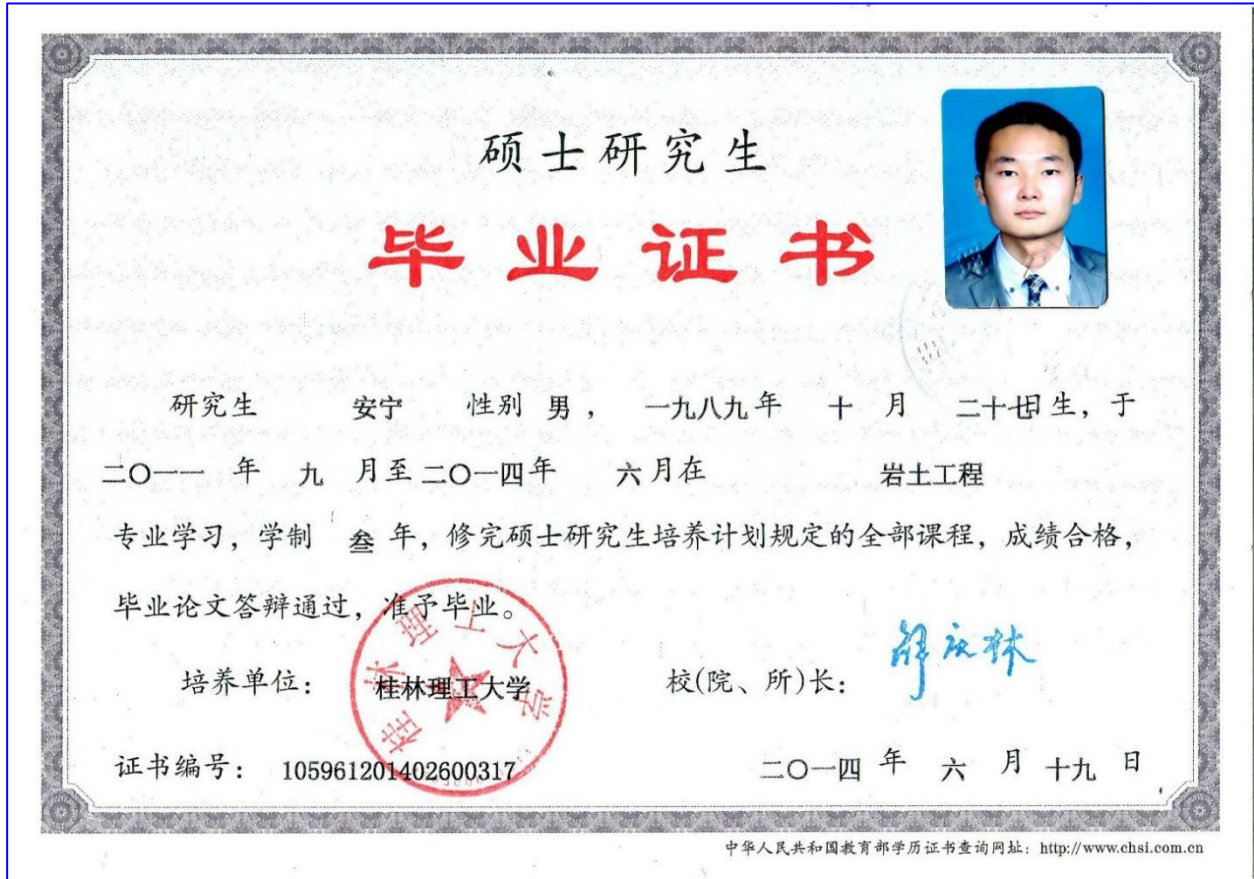 硕士研究生
毕业证书
研究生 安宁 性别 男 ， 一九八九年 十 月 二十七日生，于
二〇一一 年 九 月至二〇一四年 六月在 岩土工程
专业学习，学制 叁 年，修完硕士研究生培养计划规定的全部课程，成绩合格，
毕业论文答辩通过，准予毕业。
培养单位： 桂林理工大学 校(院、所)长：
桂林理工大学
证书编号： 105961201402600317 二〇一四 年 六 月 十九 日
中华人民共和国教育部学历证书查询网址：http://www.chsi.com.cn